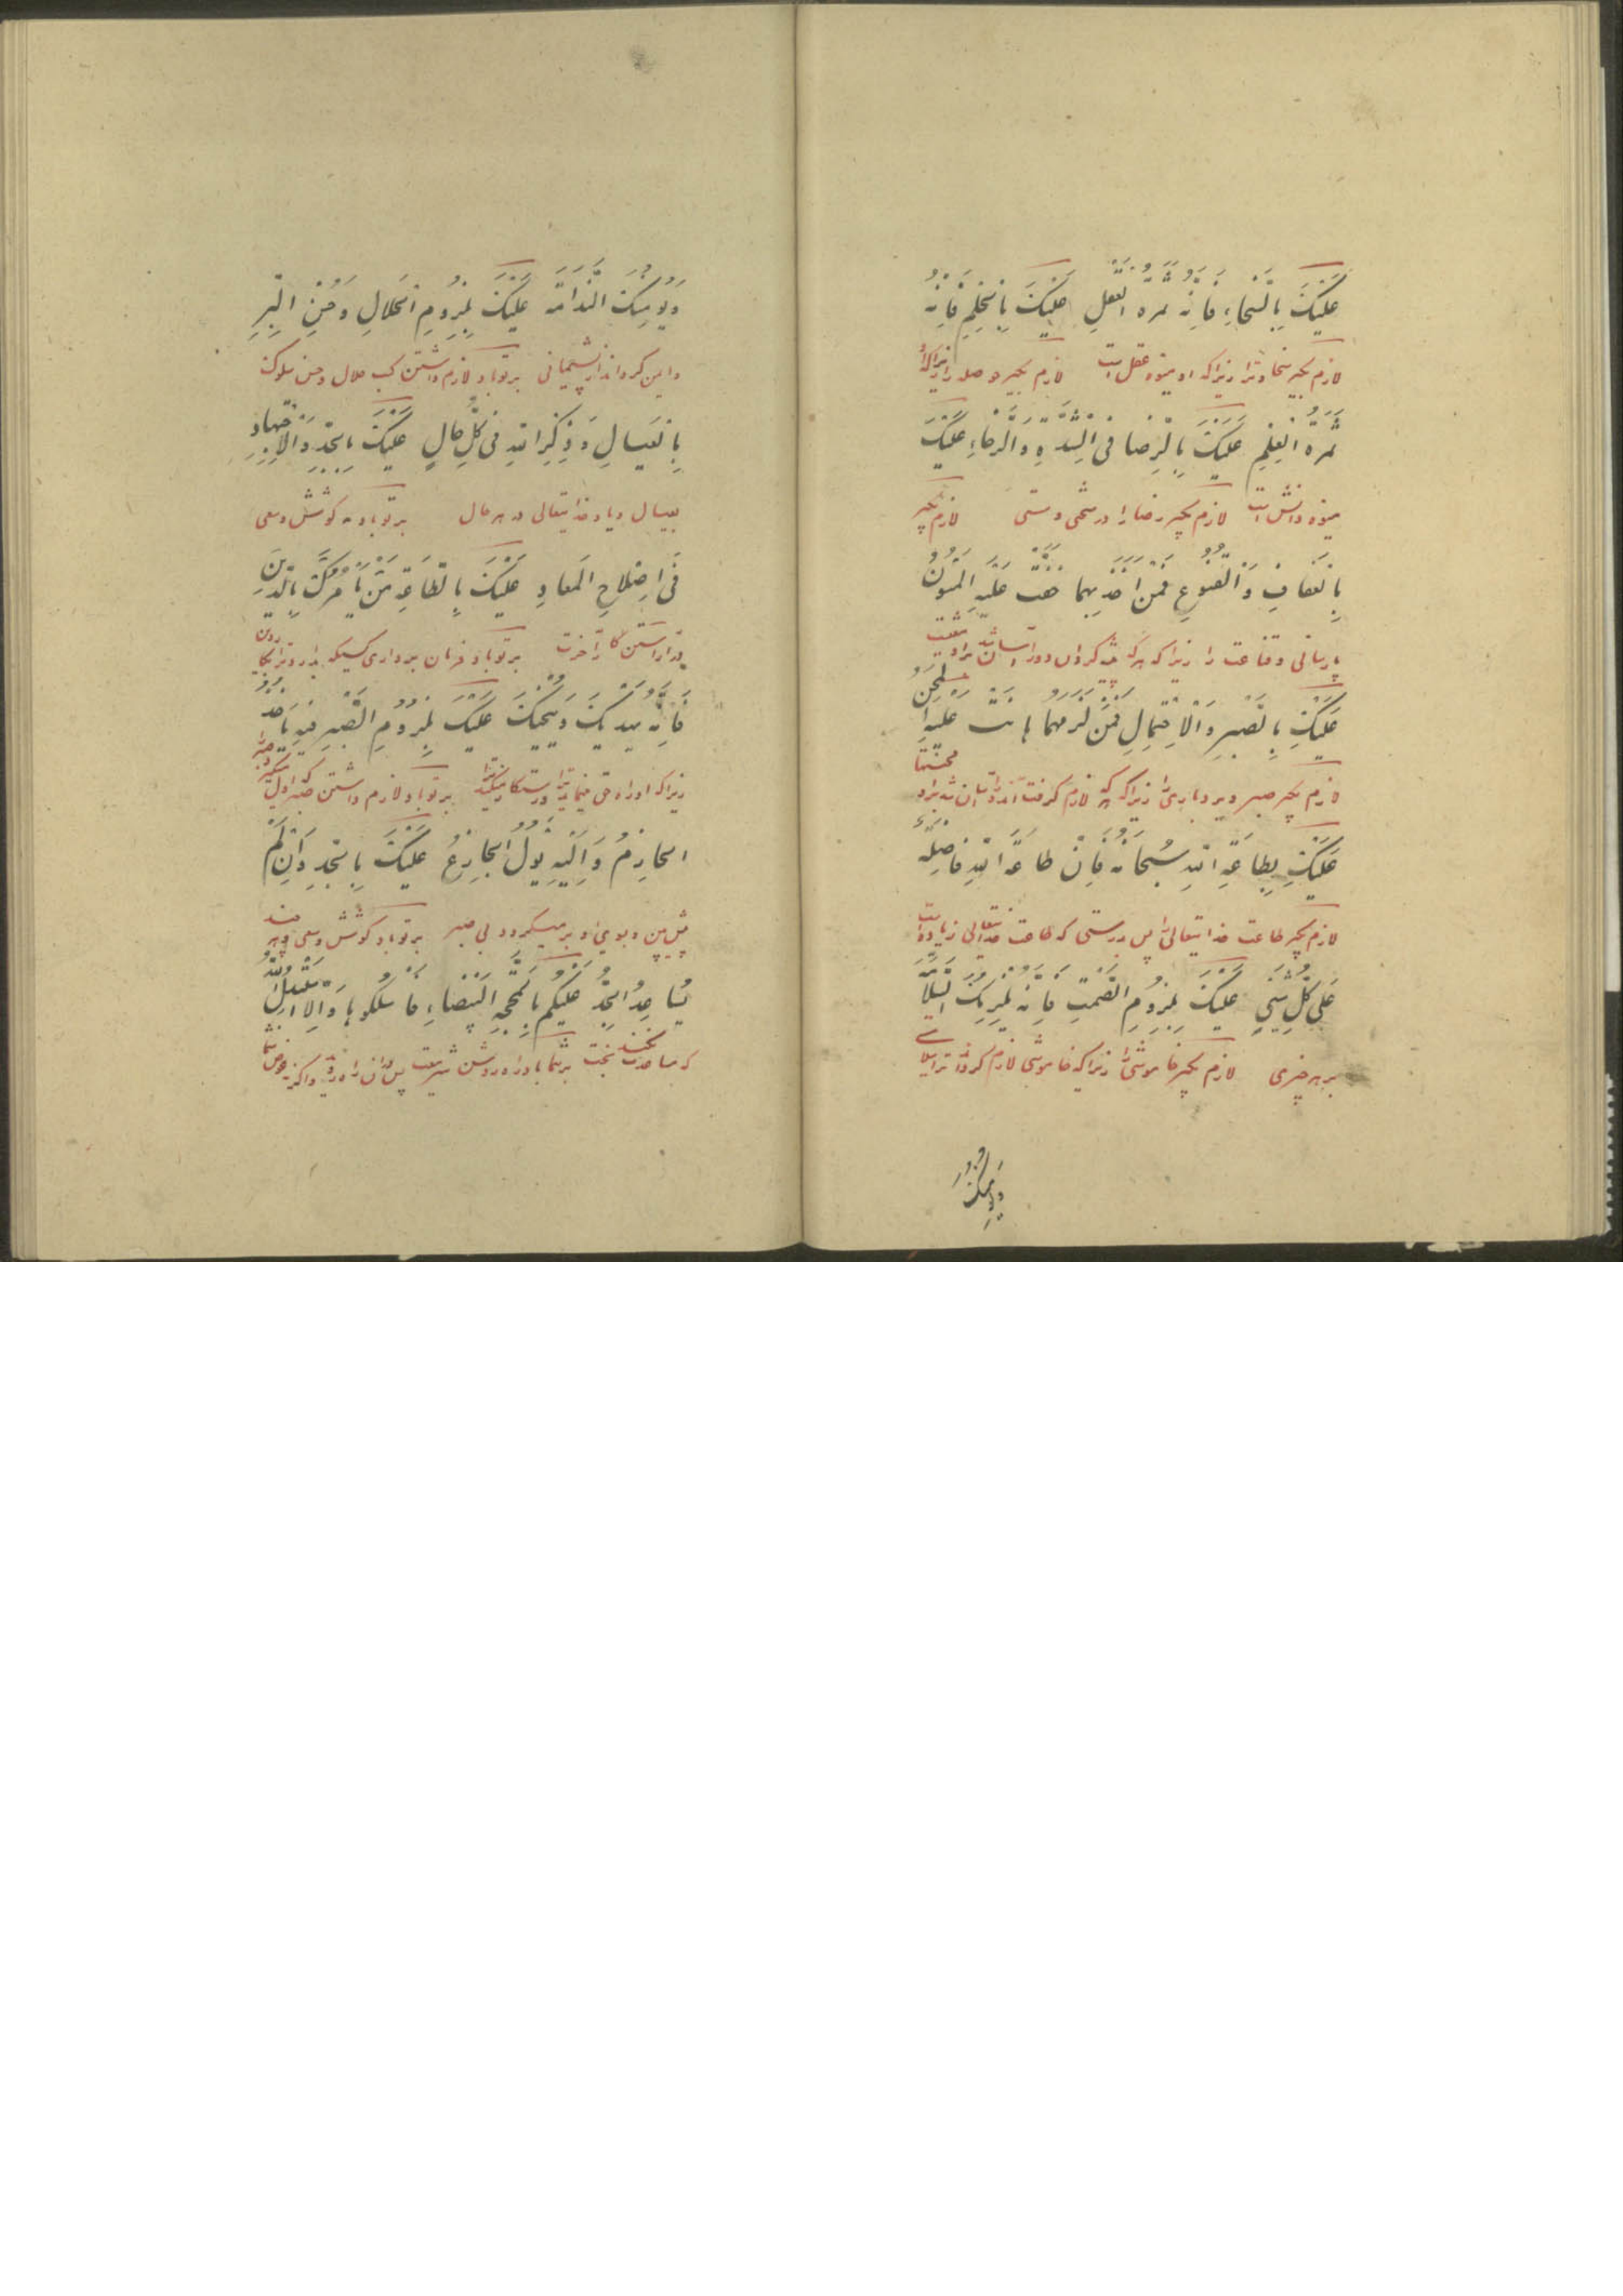 عَلَيْكَ بِالسَّخاءِ فَاِنَّهُ ثَمَرَةُ الْعَقْلِ عَلَيْكَ بِالْحِلْمِ فَاِنَّهُ
لازم بگیر سخاوترا زیراکه او میوه عقل است لازم بگیر حوصله را زیراکه او
ثَمَرَةُ الْعِلْمِ عَلَيْكَ بِالرِّضا فِى الشِّدَّةِ وَالرَّخاءِ عَلَيْكَ
میوه دانش است لازم بگیر رضا را در سختی و سستی لازم بگیر
بِالْعَفافِ وَالْقُنُوعِ فَمَنْ اَخَذَ بِهِما خَفَّتْ عَلَيْهِ الْمُؤَنُ
پارسائی و قناعت را زیراکه هرکه آسان شد براو مشقت
عَلَيْكَ بِالصَّبْرِ وَالْاِحْتِمالِ فَمَنْ لَزِمَهُما هانَتْ عَلَيْهِ الْمِحَنُ
لازم بگیر صبر و بردباری را زیراکه هرکه لازم گرفت آسان شد براو محنتها
عَلَيْكَ بِطاعَةِ اللهِ سُبْحانَهُ فَاِنَّ طاعَةَ اللهِ فاضِلَةٌ
لازم بگیر طاعت خدایتعالی را پس بدرستی که طاعت خدایتعالی زیاده است
عَلى كُلِّ شَىْءٍ عَلَيْكَ بِلُزُومِ الصَّمْتِ فَاِنَّهُ يُلْزِمُكَ السَّلامَةَ
بر هر چیزی لازم بگیر خاموشی را زیراکه خاموشی لازم گرداند ترا سلامتی
وَيُؤْمِنُكَ
وَيُؤْمِنُكَ النَّدامَةَ عَلَيْكَ بِلُزُومِ الْحَلالِ وَحُسْنِ الْبِرِّ
و ایمن گرداند از پشیمانی بر تو باد لازم داشتن کسب حلال و حسن سلوک
بِالْعِيالِ وَذِكْرِ اللهِ فى كُلِّ حالٍ عَلَيْكَ بِالْجِدِّ وَالْاِجْتِهادِ
بعیال و یاد خدایتعالی در هر حال بر تو باد به کوشش و سعی
فى اِصْلاحِ الْمَعادِ عَلَيْكَ بِالطّاعَةِ مَنْ يَأْمُرُكَ بِالدّينِ
آخرت بر تو باد فرمان برداری کسیکه
فَاِنَّهُ يَهْديكَ وَيُنْجيكَ عَلَيْكَ بِلُزُومِ الصَّبْرِ فَبِهِ يَأْخُذُ
زیراکه او راه حق بر تو باد لازم داشتن صبر
الْحازِمُ وَاِلَيْهِ يَؤُولُ الْجازِعُ عَلَيْكَ بِالْجِدِّ وَاِنْ لَمْ
پیش بین و بسوی او بر میگردد بی صبر بر تو باد کوشش و سعی و هرچند
يُساعِدِ الْجَدُّ عَلَيْكُمْ بِالْمَحَجَّةِ الْبَيْضاءِ فَاسْلُكُوها وَاِلّا اسْتَبْدَلَ اللهُ
که مساعدت نکند بخت بر شما باد راه روشن شریعت پس